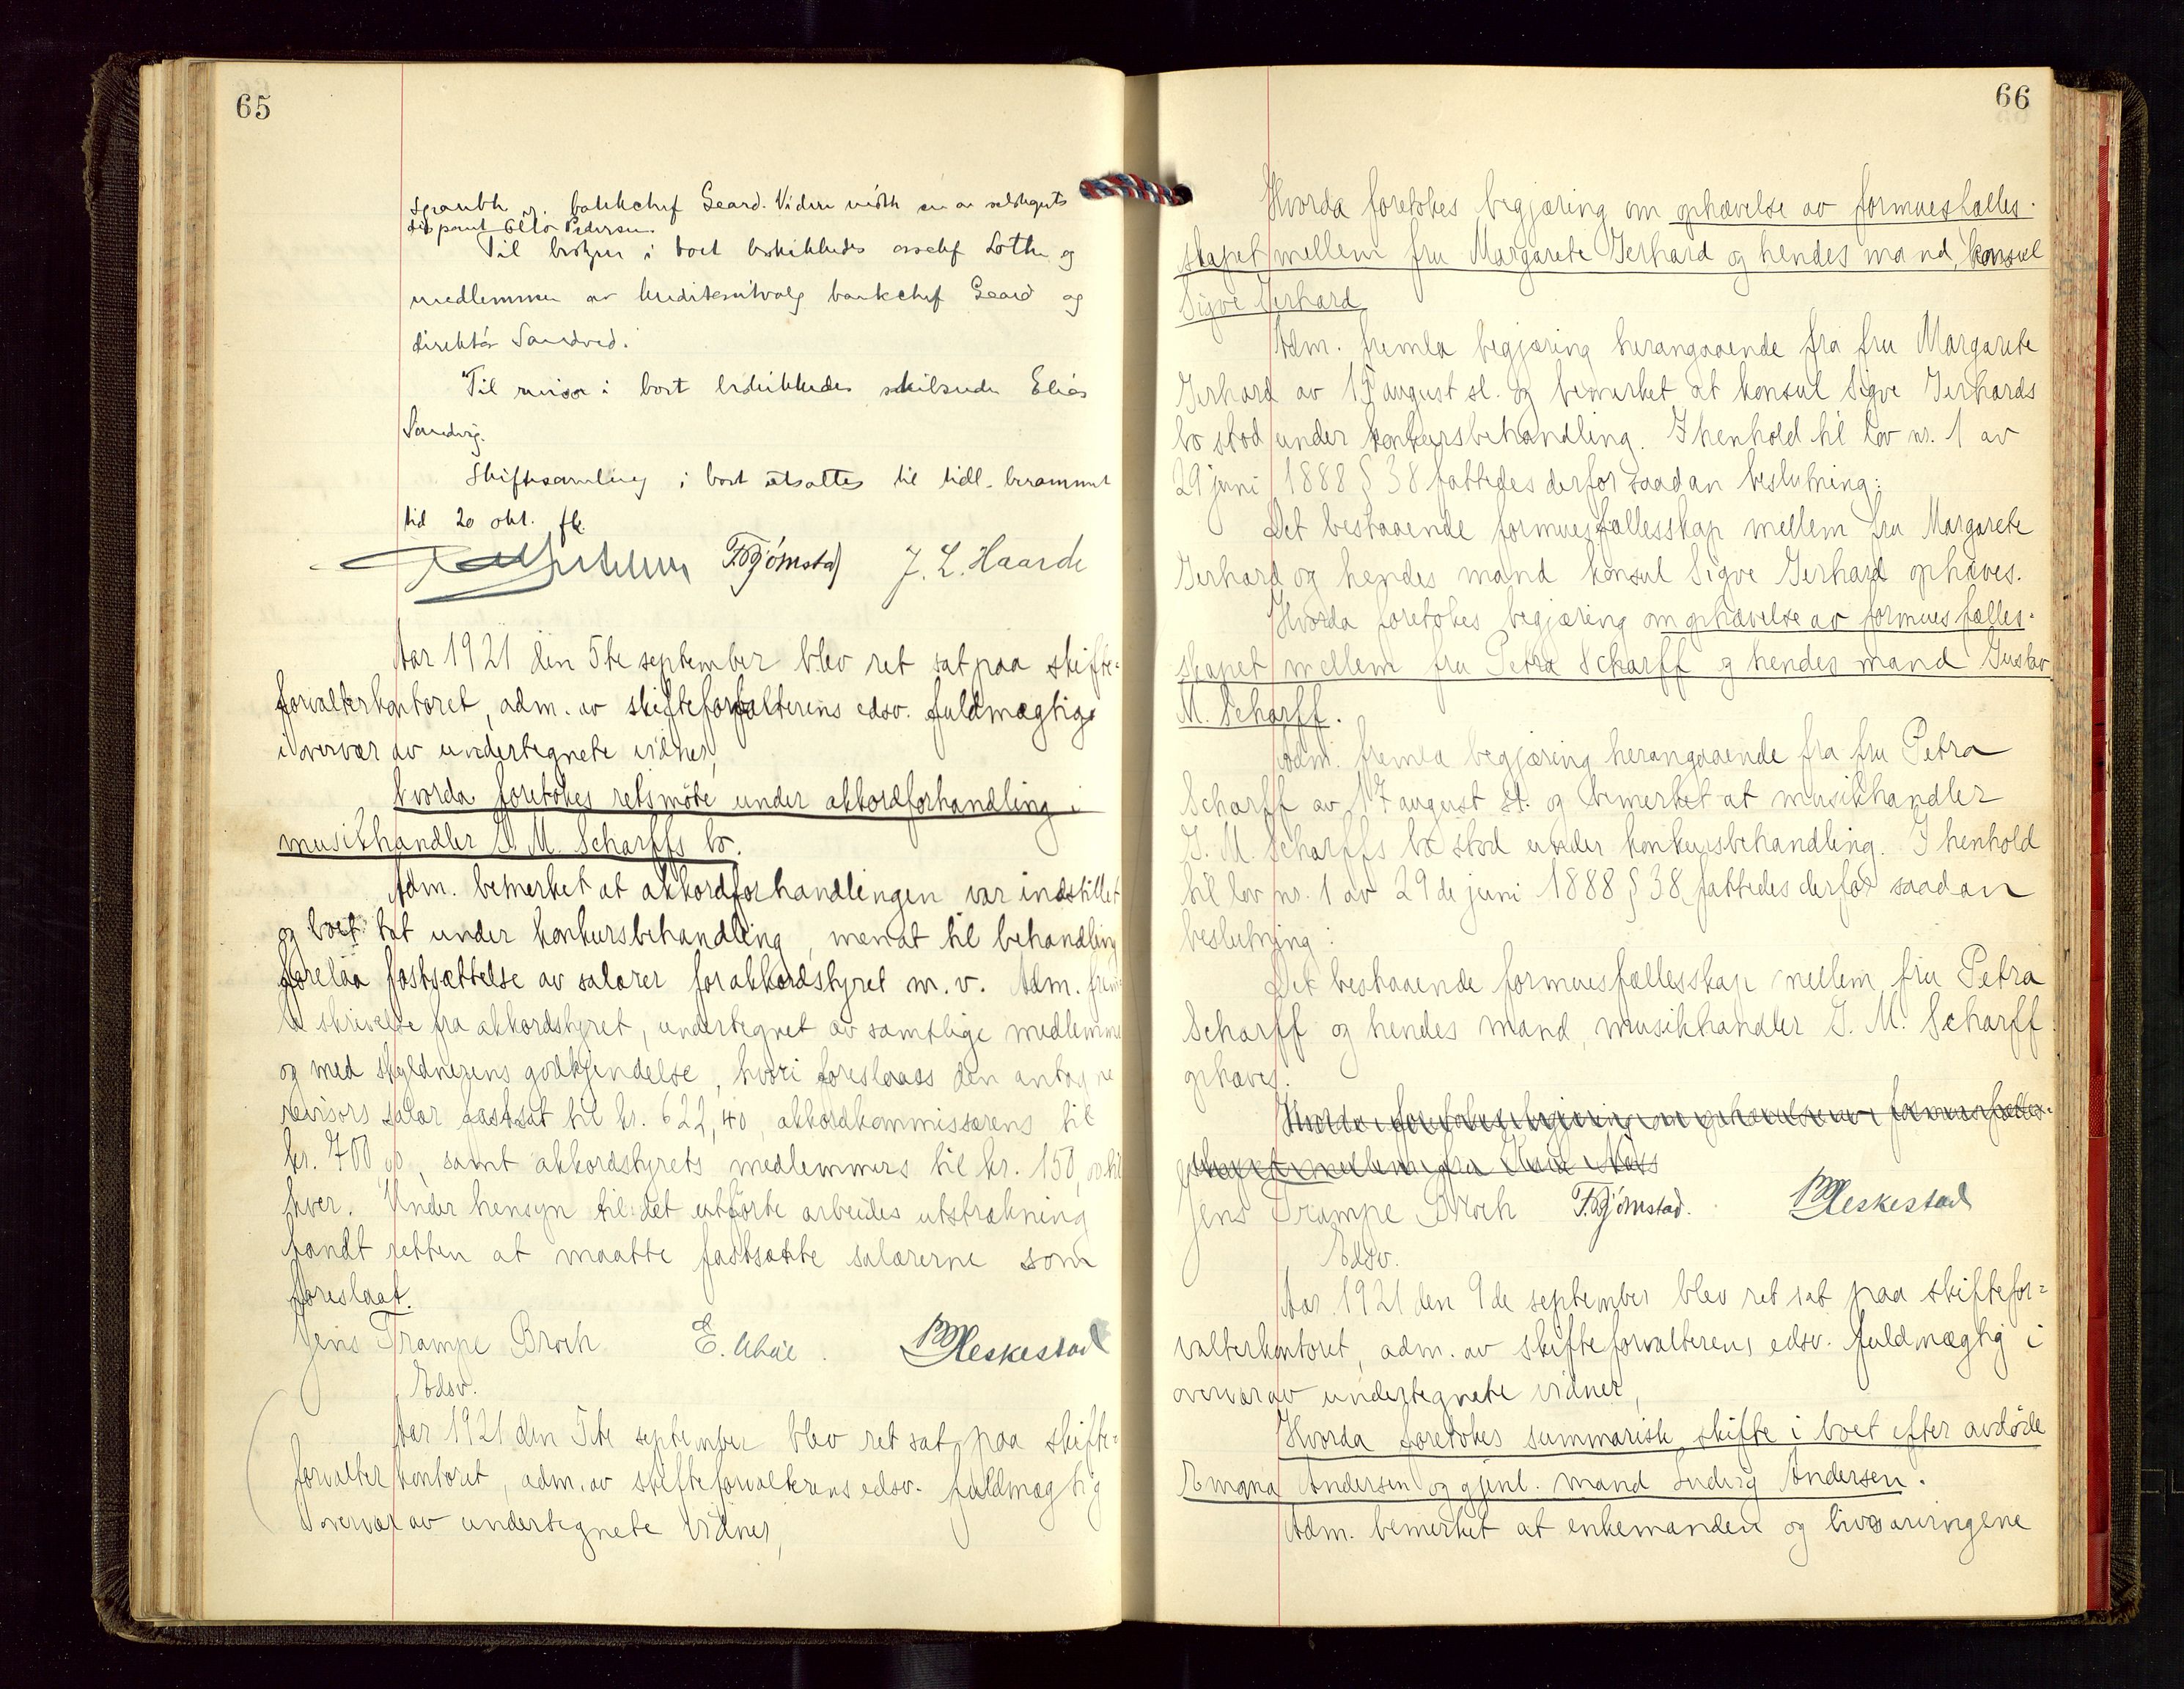 65
bankchef Geard. Videre
disponent Otto Pedersen.
Til bestyrer i boet beskikkedes Lothe og
medlemmer av kreditorutvalg bankchef Geard og
direktør Sandved.
Til revisor i boet beskikkedes Elias
Sandvig.
Skiftesamling i boet utsattes til tidl. berammet
tid 20 okt. fk.
T. Bjørnstad J. L. Haarde
Aar 1921 den 5te september blev ret sat paa skifte-
forvalterkontoret, adm. av skifteforvalterens edsv. fuldmægtig
i overvær av undertegnete vidner,
Hvorda foretokes retsmøte under akkordforhandling i
musikhandler G. M. Scharffs bo.
Adm. bemerket at akkordforhandlingen var indstillet
og boet tat under konkursbehandling, men at til behandling
forelaa fastsættelse av salærer for akkordstyret m. v. Adm. frem-
la skrivelse fra akkordstyret, undertegnet av samtlige medlemmer
og med skyldnerens godkjendelse, hvori foreslaaes den antagne
revisors salær fastsat til kr. 622,40, akkordkommissærens til
kr. 700,00, samt akkordstyrets medlemmers til kr. 150,00 til
hver. Under hensyn til det utførte arbeides utstrækning
fandt retten at maatte fastsætte salærerne som
foreslaat.
Jens Trampe Broch E. B. Heskestad
Edsv.
Aar 1921 den 5te september blev ret sat paa skifte-
forvalterkontoret, adm. av skifteforvalterens edsv. fuldmægtig
i overvær av undertegnete vidner,
66
Hvorda foretokes begjæring om ophævelse av formuesfælles-
skapet mellem fru Margarete Gerhard og hendes mand, konsul
Sigve Gerhard
Adm. fremla begjæring herangaaende fra fru Margarete
Gerhard av 19 august sl. og bemerket at konsul Sigve Gerhards
bo stod under konkursbehandling. I henhold til lov nr. 1 av
29 juni 1888 § 38 fattedes derfor saadan beslutning:
Det bestaaende formuesfællesskap mellem fru Margarete
Gerhard og hendes mand konsul Sigve Gerhard ophæves.
Hvorda foretokes begjæring om ophævelse av formuesfælles-
skapet mellem fru Petra Scharff og hendes mand Gustav
M. Scharff.
Adm. fremla begjæring herangaaende fra fru Petra
Scharff av 17 august sl. og bemerket at musikhandler
G. M. Scharffs bo stod under konkursbehandling. I henhold
til lov nr. 1 av 29de juni 1888 § 38 fattedes derfor saadan
beslutning:
Det bestaaende formuesfællesskap mellem fru Petra
Scharff og hendes mand, musikhandler G. M. Scharff
ophæves.
Hvorda foretokes begjæring om ophævelse av formuesfælles-
skapet mellem fru
Jens Trampe Broch T. Bjørnstad. B. Heskestad
Edsv.
Aar 1921 den 9de september blev ret sat paa skiftefor-
valterkontoret, adm. av skifteforvalterens edsv. fuldmægtig i
overvær av undertegnete vidner,
Hvorda foretokes summarisk skifte i boet efter avdøde
Andersen og gjenl. mand Ludvig Andersen.
Adm. bemerket at enkemanden og livsarvingene